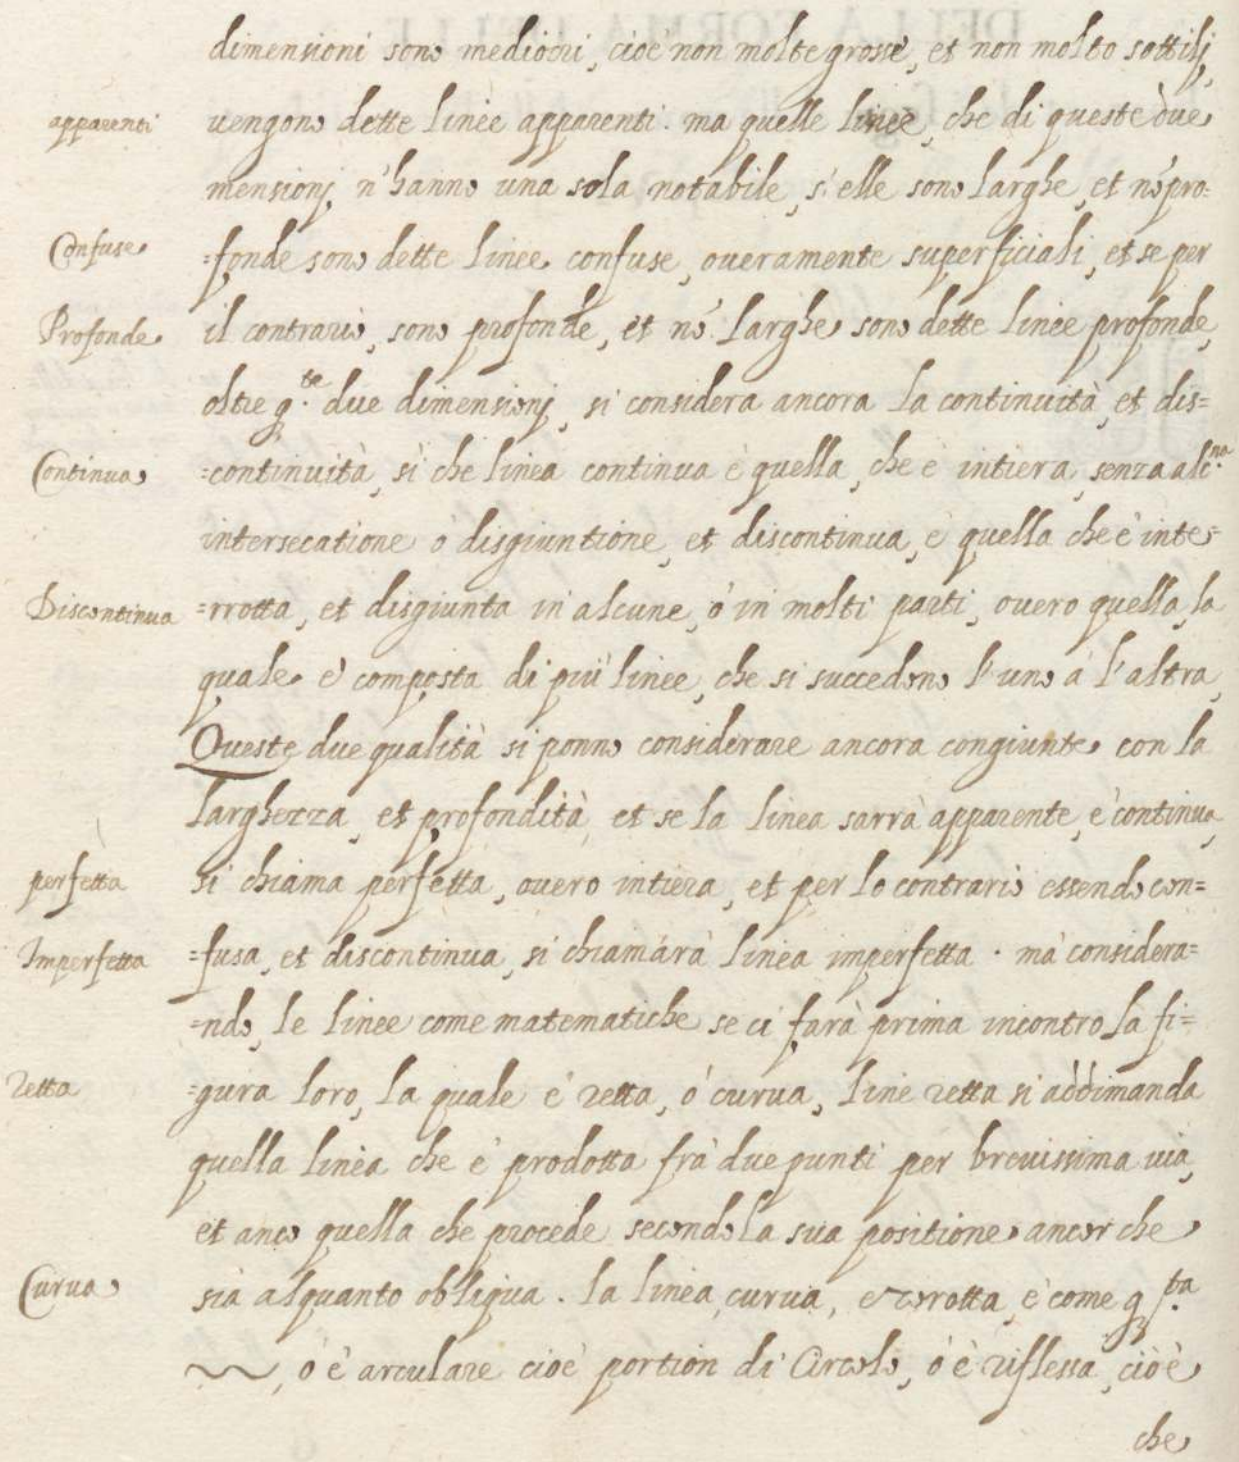 dimensioni sono mediocri, cioè non molte grosse, et non molto sottilj,
apparenti
uengono dette linèe apparenti. ma quelle linee, che di queste due
mensionj, n'hanno una sola notabile, s'elle sono larghe, et nò pro=
Confuse
=fonde sono dette linee confuse, oueramente superficiali, et se per
Profonde
il contrario, sono profonde, et nò larghe sono dette linèe profonde,
oltre q.te due dimensionj, si considera ancora la continuità, et dis=
Continua
=continuità, sì che linea continua è quella, che è intiera, senza alc.na
intersecatione ò disgiuntione, et discontinua, è quella che è inte=
Discontinua
=rrotta, et disgiunta in alcune, ò in molti parti, ouero quella, la
quale è composta di più linèe, che si succedono l'uno à l'altra,
Queste due qualità si ponno considerare ancora congiunte con la
larghezza, et profondità, et se la linea sarrà apparente, è continua,
perfetta
si chiama perfetta, ouero intiera, et per lo contrario essendo con=
Imperfetta
=fusa, et discontinua, si chiamarà linea imperfetta. mà considera=
=ndo, le linee come matematiche se ci farà prima incontro la fi=
retta
=gura loro, la quale è retta, ò curua, line retta si addimanda
quella linèa che è prodotta frà due punti per breuissima uia,
et anco quella che procede secondo la sua positione ancor che
Curua
sia alquanto obliqua. la linèa, curua, è come q.sta
, ò è arculare cioè portion di Circolo, ò è riflessa, cioè
che